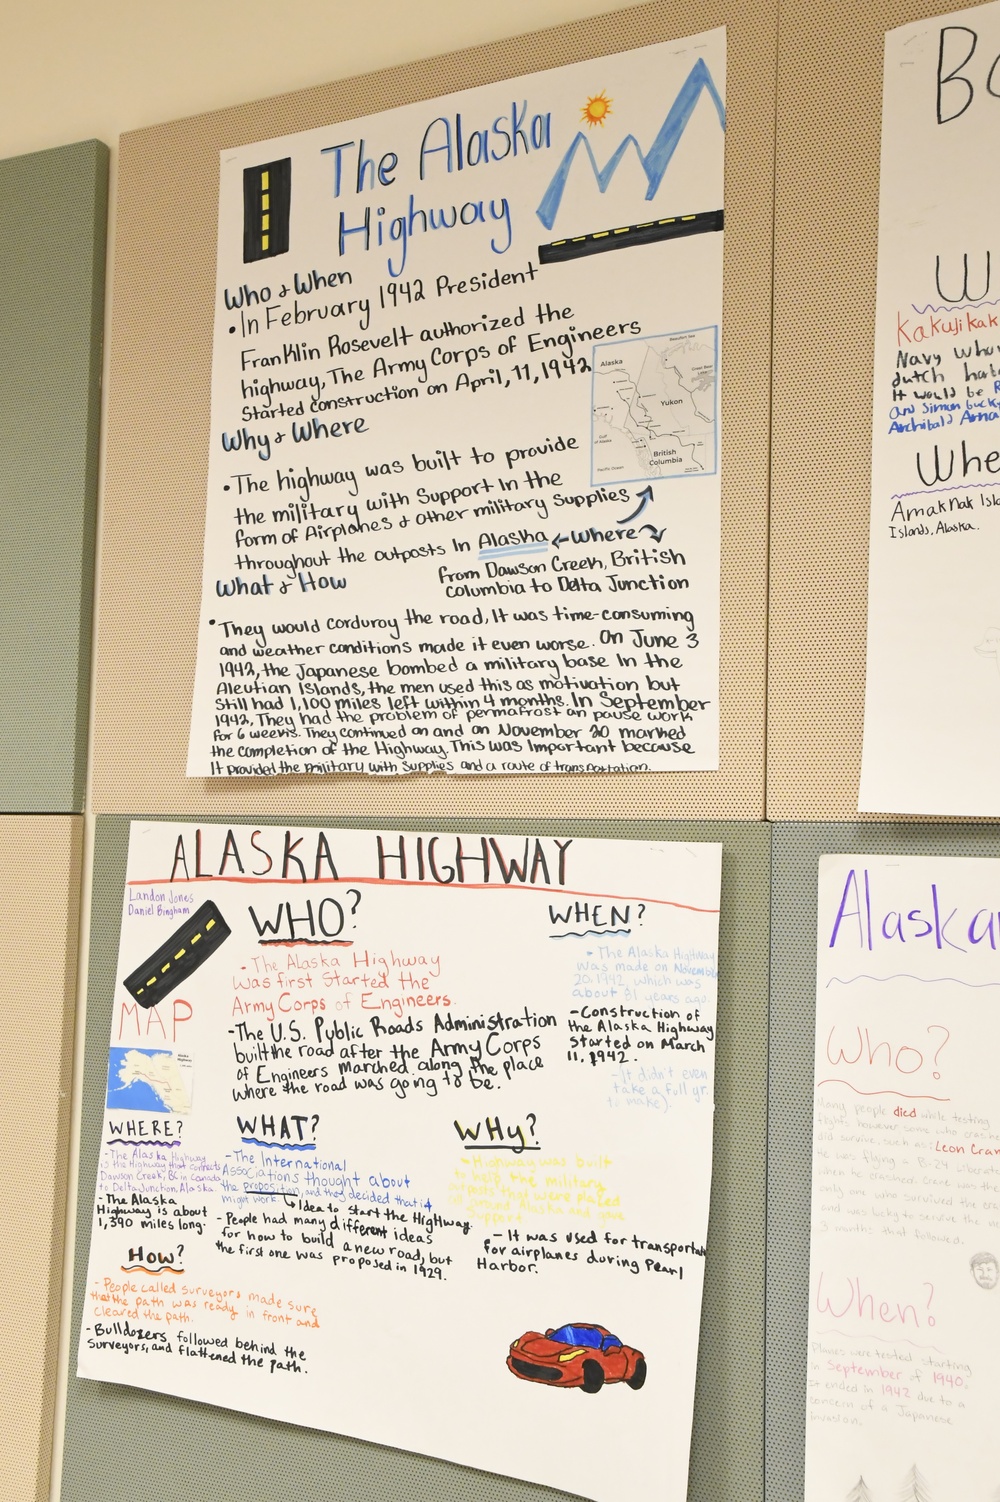 The Alaska
Highway
Who & When
• In February 1942 President
Franklin Rosevelt authorized the
highway, The Army Corps of Engineers
Started construction on April, 11, 1942
Alaska
Yukon
British
Columbia
Why & Where
• The highway was built to provide
the military with Support In the
form of Airplanes & other military Supplies
throughout the outposts In Alaska ← Where
from Dawson Creek, British
columbia to Delta Junction
What & How
• They would corduroy the road, It was time-consuming
and weather conditions made it even worse. On June 3
1942, the Japanese bombed a military base In the
Aleutian Islands, the men used this as motivation but
Still had 1,100 miles left within 4 months. In September
1942, They had the problem of permafrost an pause work
for 6 weeks. They continued on and on November 20 marked
the completion of the Highway. This was Important because
It provided the military with Supplies and a route of transportation.
ALASKA HIGHWAY
Landon Jones
Daniel Bingham
MAP
WHO?
- The Alaska Highway
was first started the
Army Corps of Engineers.
- The U.S. Public Roads Administration
built the road after the Army Corps
of Engineers marched along the place
where the road was going to be.
WHEN?
- The Alaska Highway
was made on November
20, 1942, which was
about 81 years ago.
- Construction of
the Alaska Highway
started on March
11, 1942.
- It didn't even
take a full yr.
to make).
WHERE?
- The Alaska Highway
is the Highway that connects
Dawson Creek, BC in Canada,
to Delta Junction, Alaska
- The Alaska
Highway is about
1,390 miles long.
WHAT?
- The International
Associations thought about
the proposition, and they decided that it
might work.
Idea to start the Highway.
- People had many different ideas
for how to build a new road, but
the first one was proposed in 1929.
WHy?
- Highway was built
to help the military
outposts that were placed
all around Alaska and gave
support
- It was used for transportat
for airplanes during Pearl
Harbor.
How?
- People called surveyors made sure
that the path was ready in front and
cleared the path.
- Bulldozers followed behind the
surveyors, and flattened the path.
Kakujikak
Navy who
dutch har
It would be
and Simon buck
Archibald
Whe
Amaknak Isl
Islands, Alaska.
Alaska
Who?
Many people died while testing
Leon Cran
he was flying a B-24
3 months that followed.
When?
Planes were tested starting
in September of 1940,
it ended in 1942 due to a
concern of a Japanese
invasion.